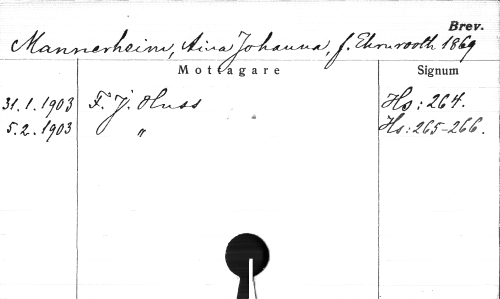 Brev.
Mannerheim, Aina Johanna, f. Ehrnrooth 1869
Mottagare Signum
31.1.1903 F. J. Huss Hs: 264.
5.2.1903 " Hs: 265-266.